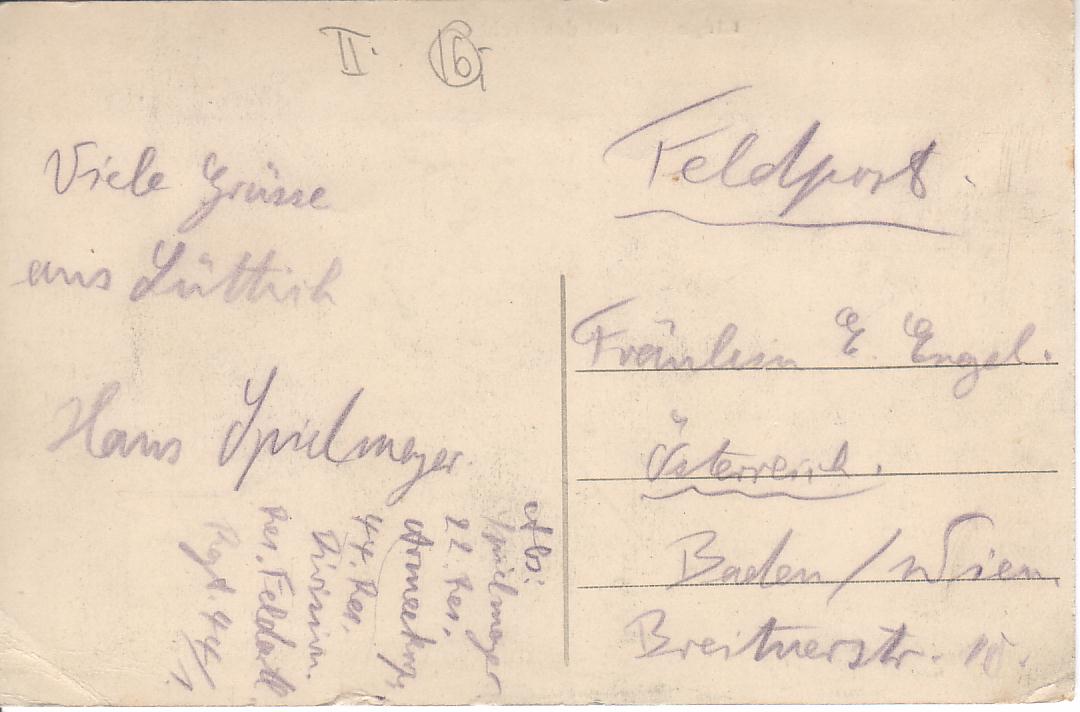 II. 16.
Viele Grüsse
aus Lüttich
Hans Spielmeyer
Abs:
Spielmeyer
22. Res.
Armeekorps,
44. Res.
Division.
Res. Feldart.
Regt. 44/
Feldpost.
Fräulein E. Engel.
Österreich.
Baden / Wien
Breitnerstr.